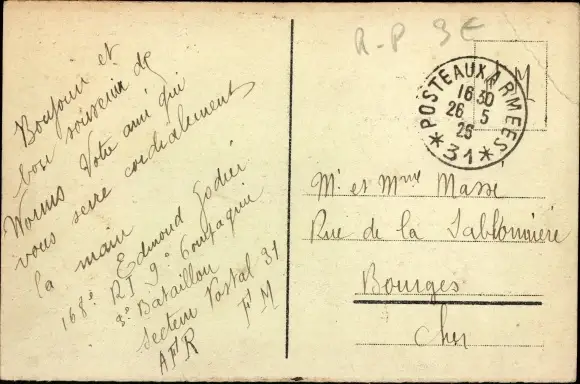 Bonjour et
bon souvenir de
Worms Votre ami qui
vous serre cordialement
la main
Edmond Godier
168e RI 9e Compagnie
3e Bataillon
Secteur Postal 31
AFR FM
R-P 3E
FM
POSTE AUX ARMEES
16 30
26 5
25
*31*
Mr et Mme Massé
Rue de la Sablonnière
Bourges
Cher